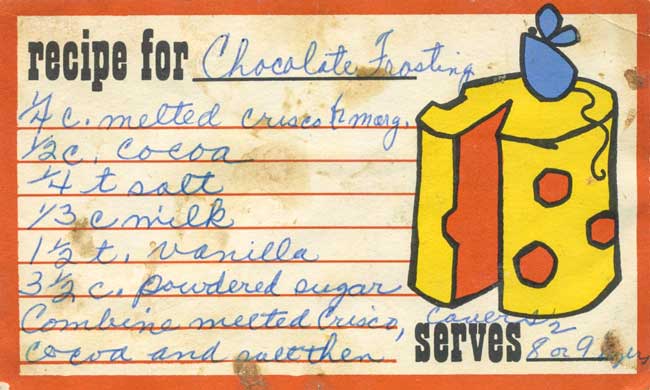 recipe for Chocolate Frosting
1/4 c. melted crisco 1/2 marg.
1/2 c. cocoa
1/4 t salt
1/3 c milk
1 1/2 t. vanilla
3 1/2 c. powdered sugar
Combine melted Crisco, covers 2
cocoa and salt then serves 8 or 9